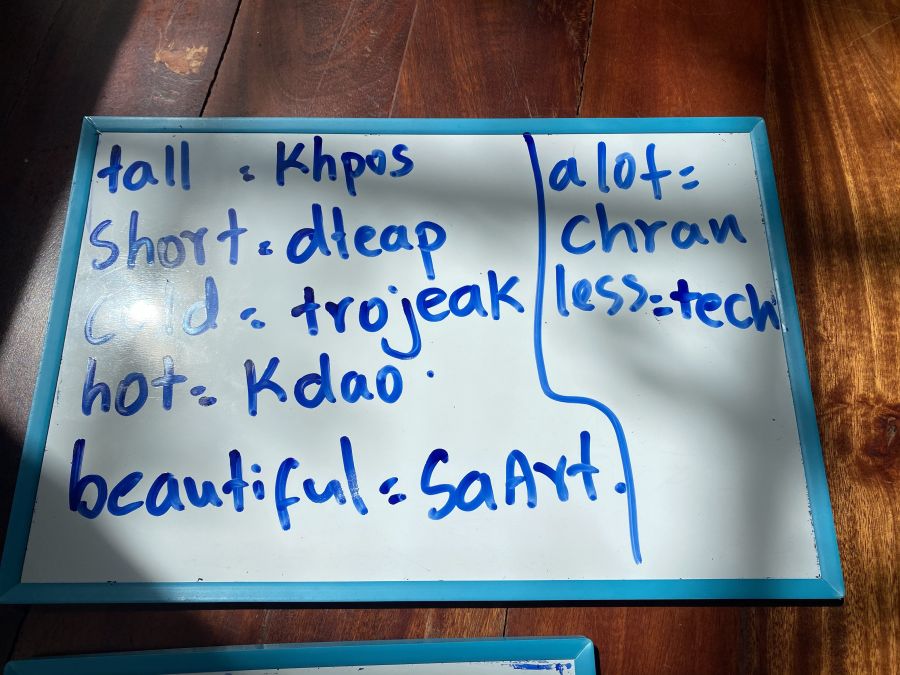 tall = Khpos
Short = dteap
cold = trojeak
hot = Kdao
beautiful = SaArt.
alot =
Chran
less = tech